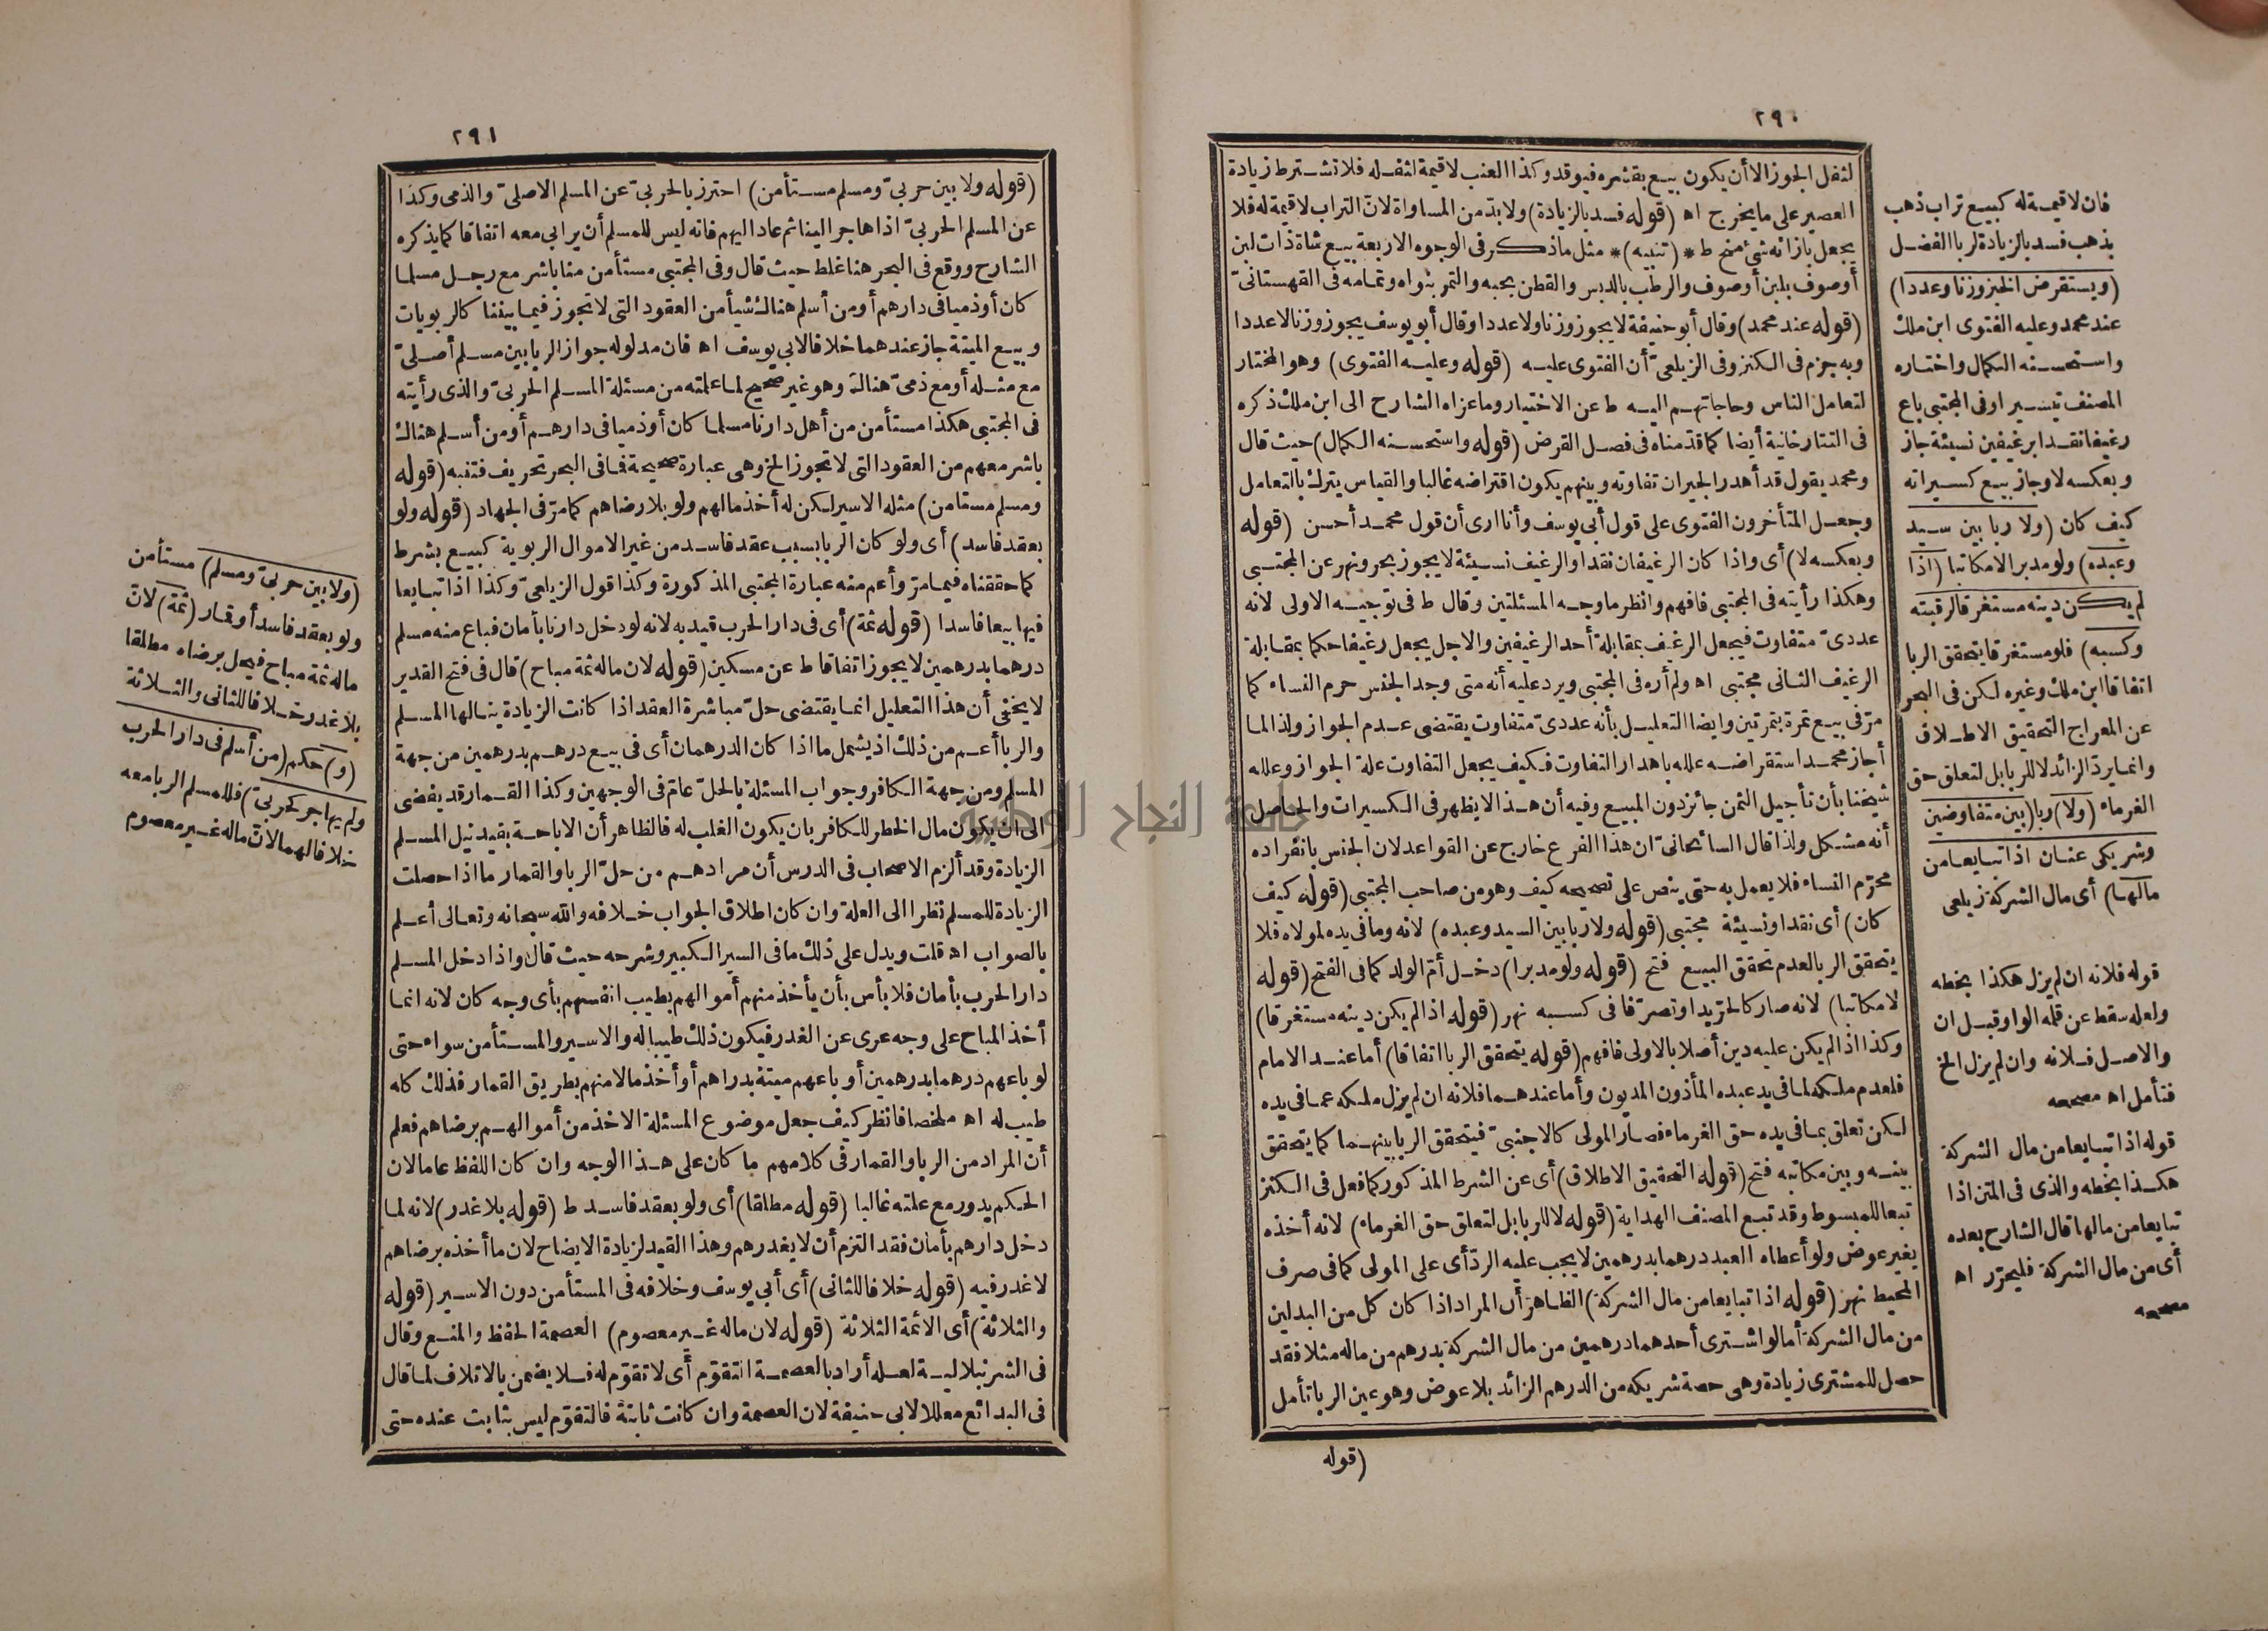 ٢٩٠
لثفل الجوز الا أن يكون بيع بقشره فيوقد وكذا العنب لا قيمة لثفله فلا تشترط زيادة
العصير على ما يخرج اه (قوله فسد بالزيادة) ولا بدّ من المساواة لانّ التراب لا قيمة له فلا
يجعل بازائه شئ منح ط * (تنبيه) * مثل ما ذكر فى الوجوه الاربعة بيع شاة ذات لبن
أوصوف بلبن أوصوف والرطب بالدبس والقطن بحبه والتمر بنواه وتمامه فى القهستانىّ
(قوله عند محمد) وقال أبو حنيفة لا يجوز وزنا ولا عددا وقال أبو يوسف يجوز وزنا لا عددا
وبه جزم فى الكنز وفى الزيلعىّ أن الفتوى عليه (قوله وعليه الفتوى) وهو المختار
لتعامل الناس وحاجاتهم اليه ط عن الاختيار وما عزاه الشارح الى ابن ملك ذكره
فى التتارخانية أيضا كما قدّمناه فى فصل القرض (قوله واستحسنه الكمال) حيث قال
ومحمد يقول قد أهدر الجيران تفاوته وبينهم يكون اقتراضه غالبا والقياس يترك بالتعامل
وجعل المتأخرون الفتوى على قول أبى يوسف وأنا ارى أن قول محمد أحسن (قوله
وبعكسه لا) أى واذا كان الرغيفان نقدا والرغيف نسيئة لا يجوز بحر ونهر عن المجتبى
وهكذا رأيته فى المجتبى فافهم وانظر ما وجه المسئلتين وقال ط فى توجيه الاولى لانه
عددىّ متفاوت فيجعل الرغيف بمقابلة أحد الرغيفين والاجل يجعل رغيفا حكما بمقابلة
الرغيف الثانى مجتبى اه ولم أره فى المجتبى ويرد عليه أنه متى وجد الجنس حرم النساء كما
مرّ فى بيع تمرة بتمرتين وايضا التعليل بأنه عددىّ متفاوت يقتضى عدم الجواز ولذا لما
أجاز محمد استقراضه علله باهدار التفاوت فكيف يجعل التفاوت علة الجواز وعلله
شيخنا بأن تأجيل الثمن جائز دون المبيع وفيه أن هذا لا يظهر فى الكسيرات والحاصل
أنه مشكل ولذا قال السائحانىّ ان هذا الفرع خارج عن القواعد لان الجنس بانفراده
محرّم النساء فلا يعمل به حتى ينص على تصحيحه كيف وهو من صاحب المجتبى (قوله كيف
كان) أى نقدا ونسيئة مجتبى (قوله ولا ربا بين السيد وعبده) لانه وما فى يده لمولاه فلا
يتحقق الربا لعدم تحقق البيع فتح (قوله ولو مدبرا) دخل أمّ الولد كما فى الفتح (قوله
لا مكاتبا) لانه صار كالحرّ يدا وتصرّفا فى كسبه نهر (قوله اذا لم يكن دينه مستغرقا)
وكذا اذا لم يكن عليه دين أصلا بالاولى فافهم (قوله يتحقق الربا اتفاقا) أما عند الامام
فلعدم ملكه لما فى يد عبده المأذون المديون وأما عندهما فلانه ان لم يزل ملكه عما فى يده
لكن تعلق بما فى يده حق الغرماء فصار المولى كالاجنبىّ فيتحقق الربا بينهما كما يتحقق
بينه وبين مكاتبه فتح (قوله التحقيق الاطلاق) أى عن الشرط المذكور كما فعل فى الكنز
تبعا للمبسوط وقد تبع المصنف الهداية (قوله لا للربا بل لتعلق حق الغرماء) لانه أخذه
بغير عوض ولو أعطاه العبد درهما بدرهمين لا يجب عليه الردّ أى على المولى كما فى صرف
المحيط نهر (قوله اذا تبايعا من مال الشركة) الظاهر أن المراد اذا كان كل من البدلين
من مال الشركة أما لو اشترى أحدهما درهمين من مال الشركة بدرهم من ماله مثلا فقد
حصل للمشترى زيادة وهى حصة شريكه من الدرهم الزائد بلا عوض وهو عين الربا تأمل
(قوله
فان لا قيمة له كبيع تراب ذهب
بذهب فسد بالزيادة لربا الفضل
(ويستقرض الخبز وزنا وعددا)
عند محمد وعليه الفتوى ابن ملك
واستحسنه الكمال واختاره
المصنف تيسيرا وفى المجتبى باع
رغيفا نقدا برغيفين نسيئة جاز
وبعكسه لا وجاز بيع كسيراته
كيف كان (ولا ربا بين سيد
وعبده) ولو مدبرا لا مكاتبا (اذا
لم يكن دينه مستغرقا لرقبته
وكسبه) فلو مستغرقا يتحقق الربا
اتفاقا ابن ملك وغيره لكن فى البحر
عن المعراج التحقيق الاطلاق
وانما يردّ الزائد لا للربا بل لتعلق حق
الغرماء (ولا) ربا (بين متفاوضين
وشريكى عنان اذا تبايعا من
مالها) أى مال الشركة زيلعى
قوله فلانه ان لم يزل هكذا بخطه
ولعله سقط عن قلمه الواو قبل ان
والاصل فلانه وان لم يزل الخ
فتأمل اه مصححه
قوله اذا تبايعا من مال الشركة
هكذا بخطه والذى فى المتن اذا
تبايعا من مالها قال الشارح بعده
أى من مال الشركة فليحرّر اه
مصححه
٢٩١
(قوله ولا بين حربىّ ومسلم مستأمن) احترز بالحربىّ عن المسلم الاصلىّ والذمى وكذا
عن المسلم الحربىّ اذا هاجر الينا ثم عاد اليهم فانه ليس للمسلم أن يرابى معه اتفاقا كما يذكره
الشارح ووقع فى البحر هنا غلط حيث قال وفى المجتبى مستأمن منا باشر مع رجل مسلما
كان أو ذميا فى دارهم أو من أسلم هناك شيأ من العقود التى لا تجوز فيما بيننا كالربويات
وبيع الميتة جاز عندهما خلافا لابى يوسف اه فان مدلوله جواز الربا بين مسلم أصلىّ
مع مثله أو مع ذمىّ هناك وهو غير صحيح لما علمته من مسئلة المسلم الحربىّ والذى رأيته
فى المجتبى هكذا مستأمن من أهل دارنا مسلما كان أو ذميا فى دارهم أو من أسلم هناك
باشر معهم من العقود التى لا تجوز الخ وهى عبارة صحيحة فما فى البحر تحريف فتنبه (قوله
ومسلم مستامن) مثله الاسير لكن له أخذ مالهم ولو بلا رضاهم كما مرّ فى الجهاد (قوله ولو
بعقد فاسد) أى ولو كان الربا بسبب عقد فاسد من غير الاموال الربوية كبيع بشرط
كما حققناه فيما مرّ وأعم منه عبارة المجتبى المذكورة وكذا قول الزيلعىّ وكذا اذا تبايعا
فيها بيعا فاسدا (قوله ثمة) أى فى دار الحرب قيد به لانه لو دخل دارنا بأمان فباع منه مسلم
درهما بدرهمين لا يجوز اتفاقا ط عن مسكين (قوله لان ماله ثمة مباح) قال فى فتح القدير
لا يخفى أن هذا التعليل انما يقتضى حلّ مباشرة العقد اذا كانت الزيادة ينالها المسلم
والربا أعم من ذلك اذ يشمل ما اذا كان الدرهمان أى فى بيع درهم بدرهمين من جهة
المسلم ومن جهة الكافر وجواب المسئلة بالحلّ عامّ فى الوجهين وكذا القمار قد يفضى
الى ان يكون مال الخطر للكافر بان يكون الغلب له فالظاهر أن الاباحة بقيد نيل المسلم
الزيادة وقد ألزم الاصحاب فى الدرس أن مرادهم من حلّ الربا والقمار ما اذا حصلت
الزيادة للمسلم نظرا الى العلة وان كان اطلاق الجواب خلافه والله سبحانه وتعالى أعلم
بالصواب اه قلت ويدل على ذلك ما فى السير الكبير وشرحه حيث قال واذا دخل المسلم
دار الحرب بأمان فلا بأس بأن يأخذ منهم أموالهم بطيب انفسهم بأى وجه كان لانه انما
أخذ المباح على وجه عرى عن الغدر فيكون ذلك طيبا له والاسير والمستأمن سواء حتى
لو باعهم درهما بدرهمين أو باعهم ميتة بدراهم أو أخذ مالا منهم بطريق القمار فذلك كله
طيب له اه ملخصا فانظر كيف جعل موضوع المسئلة الاخذ من أموالهم برضاهم فعلم
أن المراد من الربا والقمار فى كلامهم ما كان على هذا الوجه وان كان اللفظ عاما لان
الحكم يدور مع علته غالبا (قوله مطلقا) أى ولو بعقد فاسد ط (قوله بلا غدر) لانه لما
دخل دارهم بأمان فقد التزم أن لا يغدرهم وهذا القيد لزيادة الايضاح لان ما أخذه برضاهم
لا غدر فيه (قوله خلافا للثانى) أى أبى يوسف وخلافه فى المستأمن دون الاسير (قوله
والثلاثة) أى الائمة الثلاثة (قوله لان ماله غير معصوم) العصمة الحفظ والمنع وقال
فى الشرنبلالية لعله أراد بالعصمة التقوّم أى لا تقوّم له فلا يضمن بالاتلاف لما قال
فى البدائع معللا لابى حنيفة لان العصمة وان كانت ثابتة فالتقوّم ليس بثابت عنده حتى
(ولا بين حربىّ ومسلم) مستأمن
ولو بعقد فاسد أو قمار (ثمة) لانّ
ماله ثمة مباح فيحل برضاه مطلقا
بلا غدر خلافا للثانى والثلاثة
(و) حكم (من أسلم فى دار الحرب
ولم يهاجر كحربىّ) فللمسلم الربا معه
خلافا لهما لانّ ماله غير معصوم
جامعة النجاح الوطنية